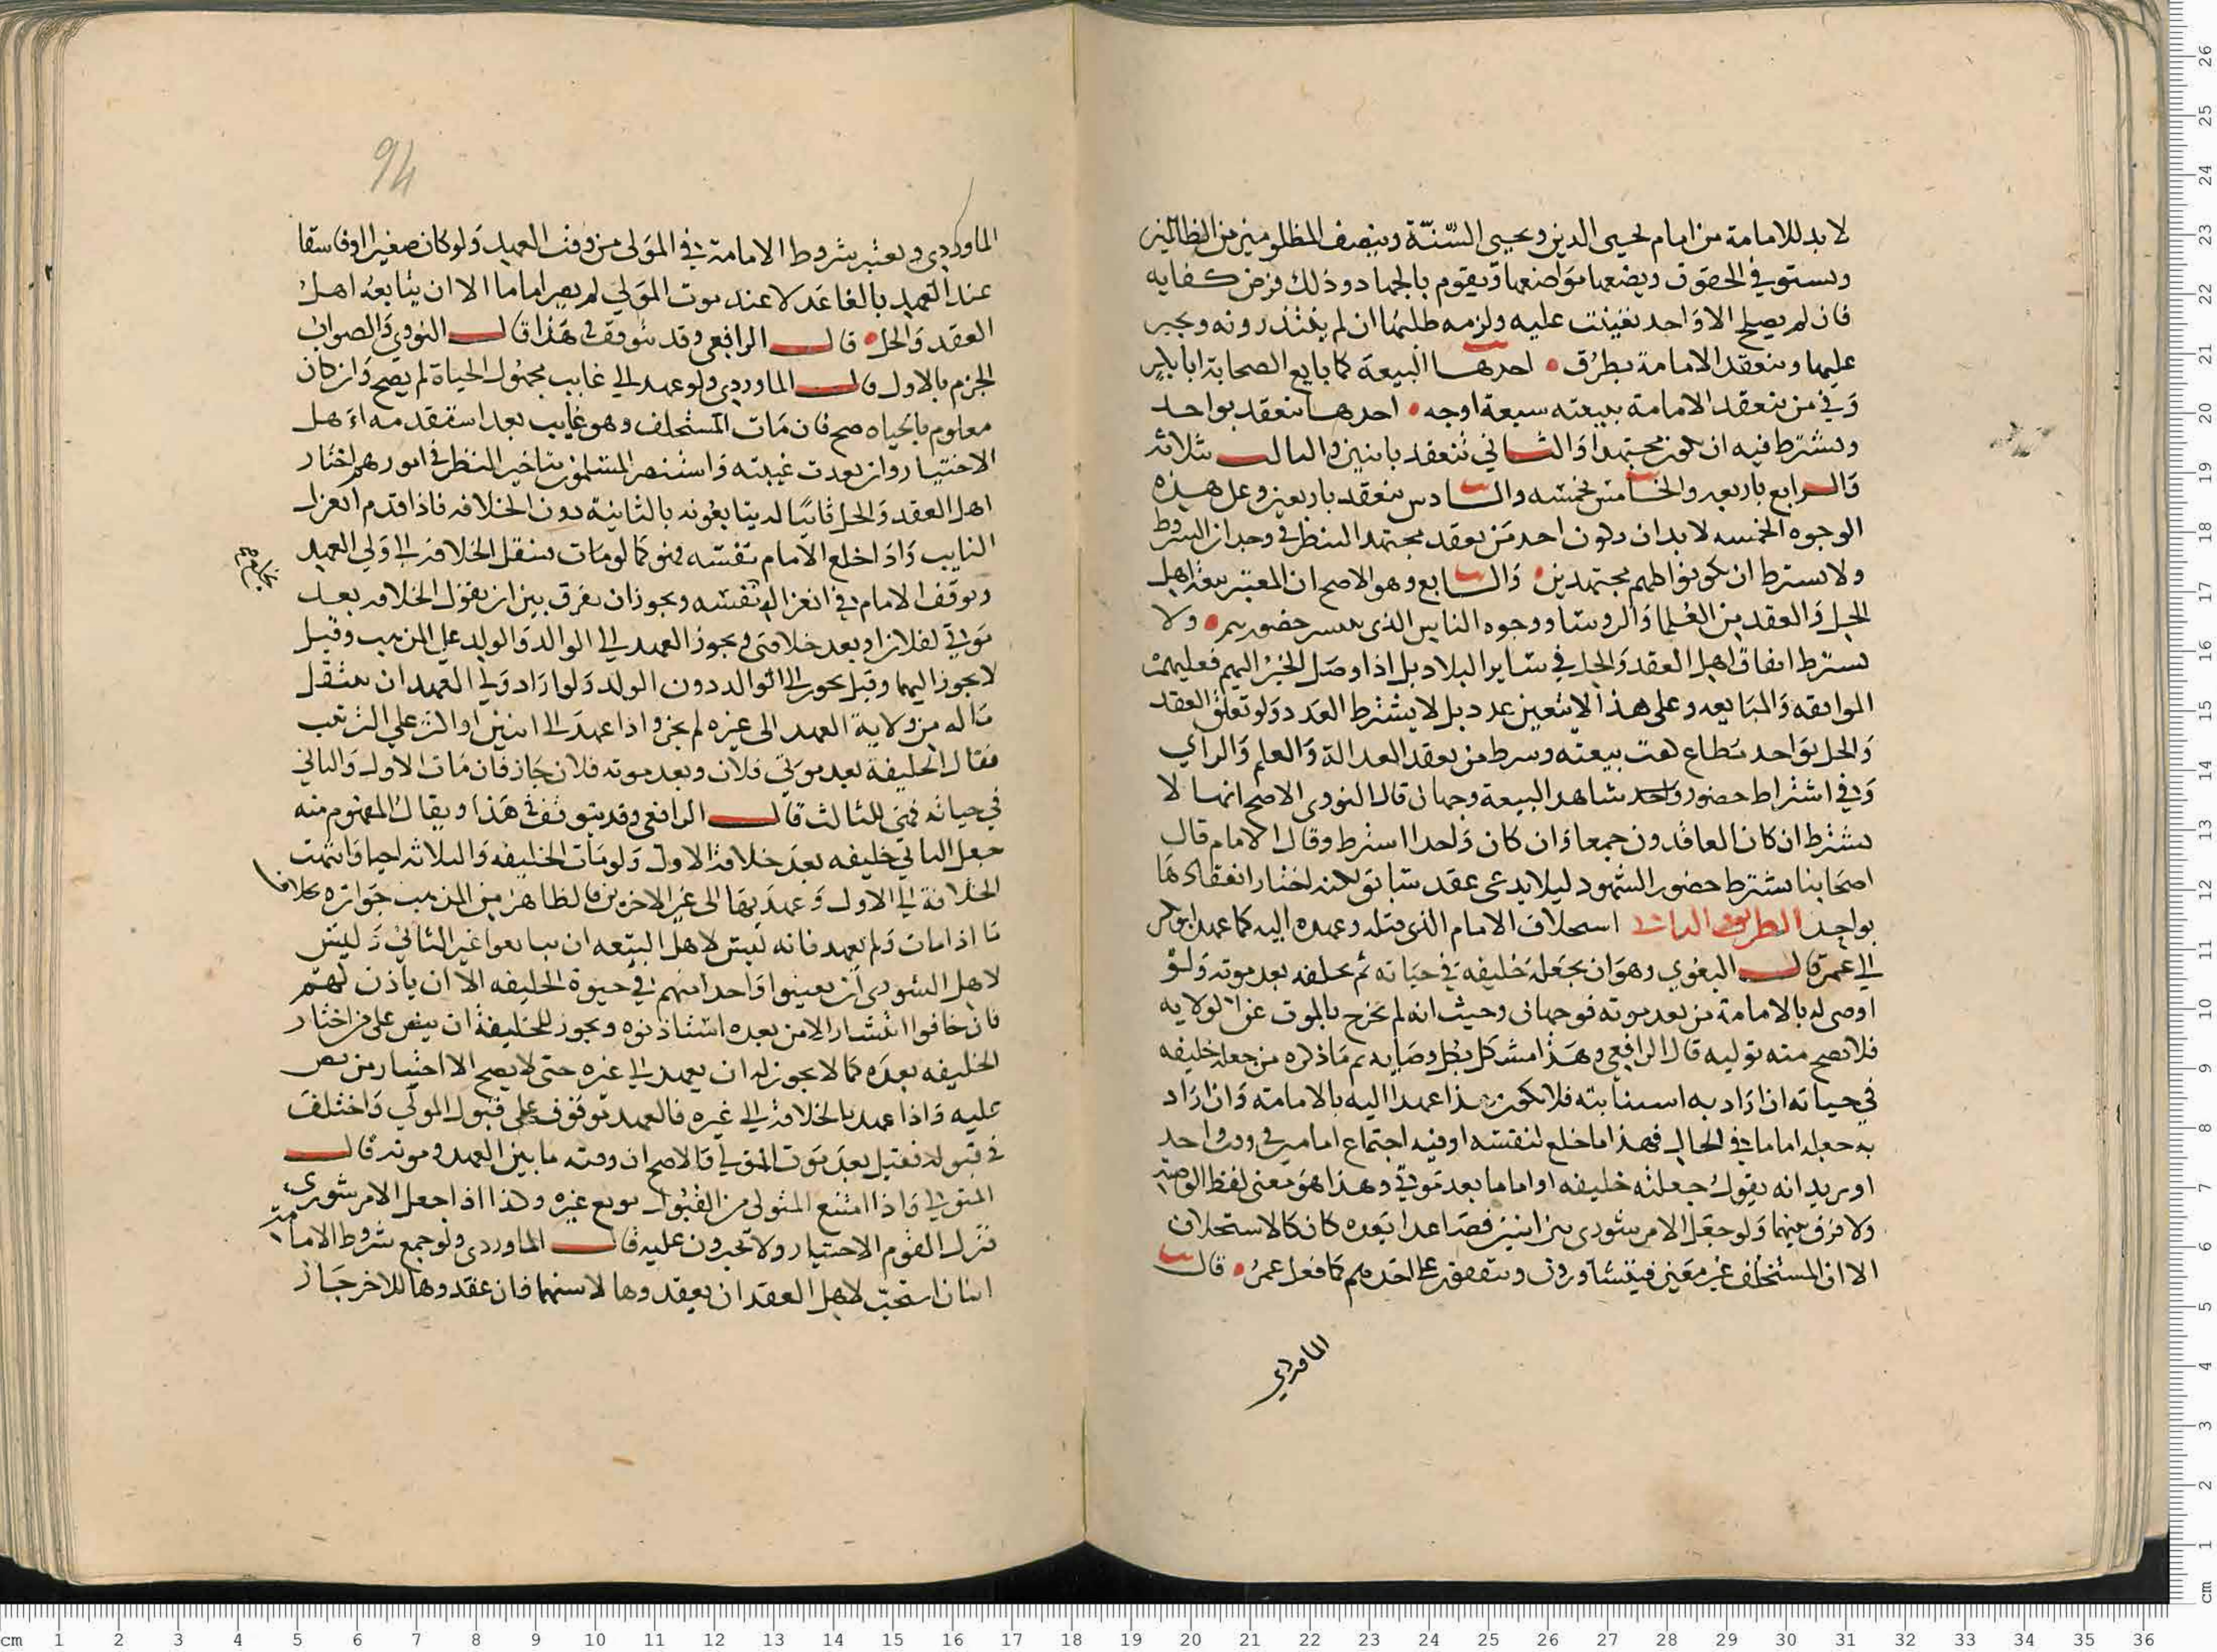 لا بد للامامة من امام لحيى الدين ويحيى السّنّة وينصف المظلومين من الظالمين
ويستوفي الحقوق ويضعها مواضعها ويقوم بالجهاد وذلك فرض كفايه
فان لم يصلح الا واحد تعينت عليه ولزمه طلبها ان لم يبتدرونه ويجبر
عليها وينعقد الامامة بطرق احدها البيعة كما بايع الصحابة ابا بكر
وفي من ينعقد الامامة ببيعته سبعة اوجه احدها ينعقد بواحد
ويشترط فيه ان يكون مجتهدا والثاني تنعقد باثنين والثالث بثلاثه
والرابع باربعه والخامس بخمسه والسادس ينعقد باربعين وعلى هذه
الوجوه الخمسه لا بد ان يكون احد من يعقد مجتهدا لينظر في وجدان الشروط
ولا يشترط ان يكونوا كلهم مجتهدين والسابع وهو الاصح ان المعتبر بيعة اهل
الحل والعقد من العلما والروسا ووجوه الناس الذي يتيسر حضورهم ولا
يشترط اتفاق اهل العقد والحل في ساير البلاد بل اذا وصل الخبر اليهم فعليهم
الموافقه والمبايعه وعلى هذا لا يتعين عدد بل لا يشترط العدد ولو تعلق العقد
والحل بواحد مطاع كفت بيعته وشرط من يعقد العدالة والعلم والراي
وفي اشتراط حضور واحد شاهد البيعة وجهان قال النووي الاصح انها لا
يشترط ان كان العاقدون جمعا وان كان واحدا اشترط وقال الامام قال
اصحابنا يشترط حضور الشهود ليلا يدعي عقد سابق لكنه اختار انعقادها
بواحد الطريق الثاني استخلاف الامام الذي قبله وعهده اليه كما عهد ابو بكر
الي عمر قال البغوي وهو ان يجعله خليفه في حياته ثم يخلفه بعد موته ولو
اوصى له بالامامة من بعد موته فوجهان وحيث انه لم يخرج بالموت عن الولايه
فلا تصح منه توليه قال الرافعي وهذا مشكل بكل وصايه ثم ما ذكره من جعله خليفه
في حياته ان اراد به استنابته فلا يكون هذا عهدا اليه بالامامة وان اراد
به جعله اماما في الحال فهذا اما خلع لنفسه او فيه اجتماع امامين في وقت واحد
او يريد انه يقول جعلته خليفه او اماما بعد موتي وهذا هو معنى لفظ الوصية
ولا فرق بينهما ولو جعل الامر شورى بين اثنين فصاعدا بعده كان كالاستخلاف
الا ان المستخلف غير معين فيتشاورون ويتفقون على احدهم كما فعل عمر قال
الماوردي
94
الماوردي ويعتبر شروط الامامة في المولى من وقت العهد ولو كان صغيرا او فاسقا
عند العهد بالغا عدلا عند موت المولي لم يصر اماما الا ان يتابعه اهل
العقد والحل قال الرافعي وقد يتوقف في هذا قال النووي والصواب
الجزم بالاول قال الماوردي ولو عهد الي غايب مجهول الحياة لم يصح وان كان
معلوم بالحياه صح فان مات المستخلف وهو غايب بعد استقدمه اهل
الاختيار وان بعدت غيبته واستضر المسلمون بتاخير النظر في امورهم اختار
اهل العقد والحل نايبا له يبايعونه بالنيابة دون الخلافه فاذا قدم انعزل
النايب واذا خلع الامام نفسه فهو كما لو مات ينتقل الخلافة الي ولي العهد
وتوقف الامام في انعزاله نفسه ويجوز ان يفرق بين ان يقول الخلافه بعد
موتي لفلان او بعد خلافتي ويجوز العهد الي الوالد والولد على المذهب وقيل
لا يجوز اليهما وقيل يجوز الي الوالد دون الولد ولو اراد ولي العهد ان ينقل
ما له من ولاية العهد الى غيره لم يجز واذا عهد الي اثنين او اكثر علي الترتيب
فقال الخليفة بعد موتي فلان وبعد موته فلان جاز فان مات الاول والثاني
في حياته فهي للثالث قال الرافعي وقد يتوقف في هذا ويقال المفهوم منه
جعل الثاني خليفه بعد خلافة الاول ولو مات الخليفه والثلاثه احيا وانتهت
الخلافة الي الاول وعهد بها الى غير الاخرين فالظاهر من المذهب جوازه خلافا
ما اذا مات ولم يعهد فانه ليس لاهل البيعه ان يبايعوا غير الثاني وليس
لاهل الشورى ان يعينوا واحدا منهم في حيوة الخليفه الا ان ياذن لهم
فان خافوا انتشار الامر بعده استاذنوه ويجوز للخليفة ان ينص على من اختار
الخليفه بعده كما لا يجوز له ان يعهد الي غيره حتى لا يصح الا اختيار من نص
عليه واذا عهد بالخلافة الي غيره فالعهد موقوف على قبول المولي واختلف
في قبوله فقيل بعد موت المولي والاصح ان وقته ما بين العهد وموته قال
المتولي واذا امتنع المتولى من القبول بويع غيره وكذا اذا جعل الامر شورى
فترك القوم الاختيار ولا يجبرون عليه قال الماوردي ولو جمع شروط الامامة
اثنان استحب لاهل العقد ان يعقدوها لاسنهما فان عقدوها للاخر جاز